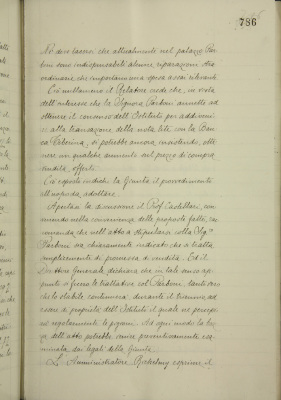 786
Nè devo tacersi che attualmente nel palazzo Par-
boni sono indispensabili alcune riparazioni stra-
ordinarie che importano una spesa assai rilevante
Ciò nullameno il Relatore crede che, in vista
dell'interesse che la Signora Parboni annette ad
ottenere il consenso dell'Istituto per addiveni-
re alla transazione della nota lite con la Ban-
ca si potrebbe ancora, insistendo, otte-
nere un qualche aumento sul prezzo di compra
vendita offerto.
Ciò esposto indichi la Giunta il provvedimento
all'uopo da adottare.
Aperta la discussione il Prof. Castellari, con-
venendo nella convenienza delle proposte fatte, rac-
comanda che nell'atto a stipularsi colla Sig.ra
Parboni sia chiaramente indicato che si tratta
semplicemente di promessa di vendita. Ed il
Direttore Generale dichiara che in tale senso ap-
punto si fecero le trattative col Parboni, tanto vero
che lo stabile continuerà durante il triennio ad
essere di proprietà dell'Istituto il quale ne percepi-
rà regolarmente le pigioni. Ad ogni modo la boz-
za dell'atto potrebbe venire preventivamente esa-
minata dai legali della Giunta.
L'Amministratore esprime il